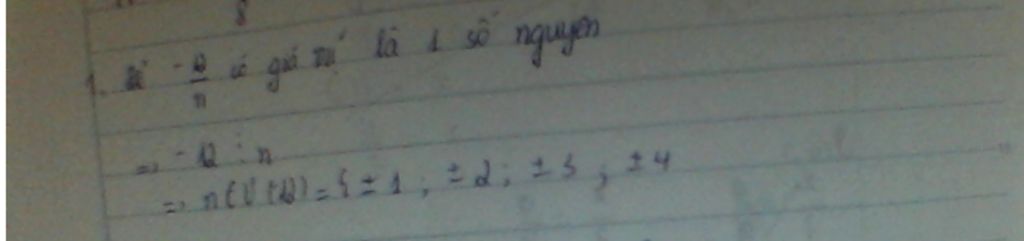 8
1. để -12/n có giá trị là 1 số nguyên
=> -12 ⋮ n
=> n(Ư(12)={±1; ±2; ±3; ±4